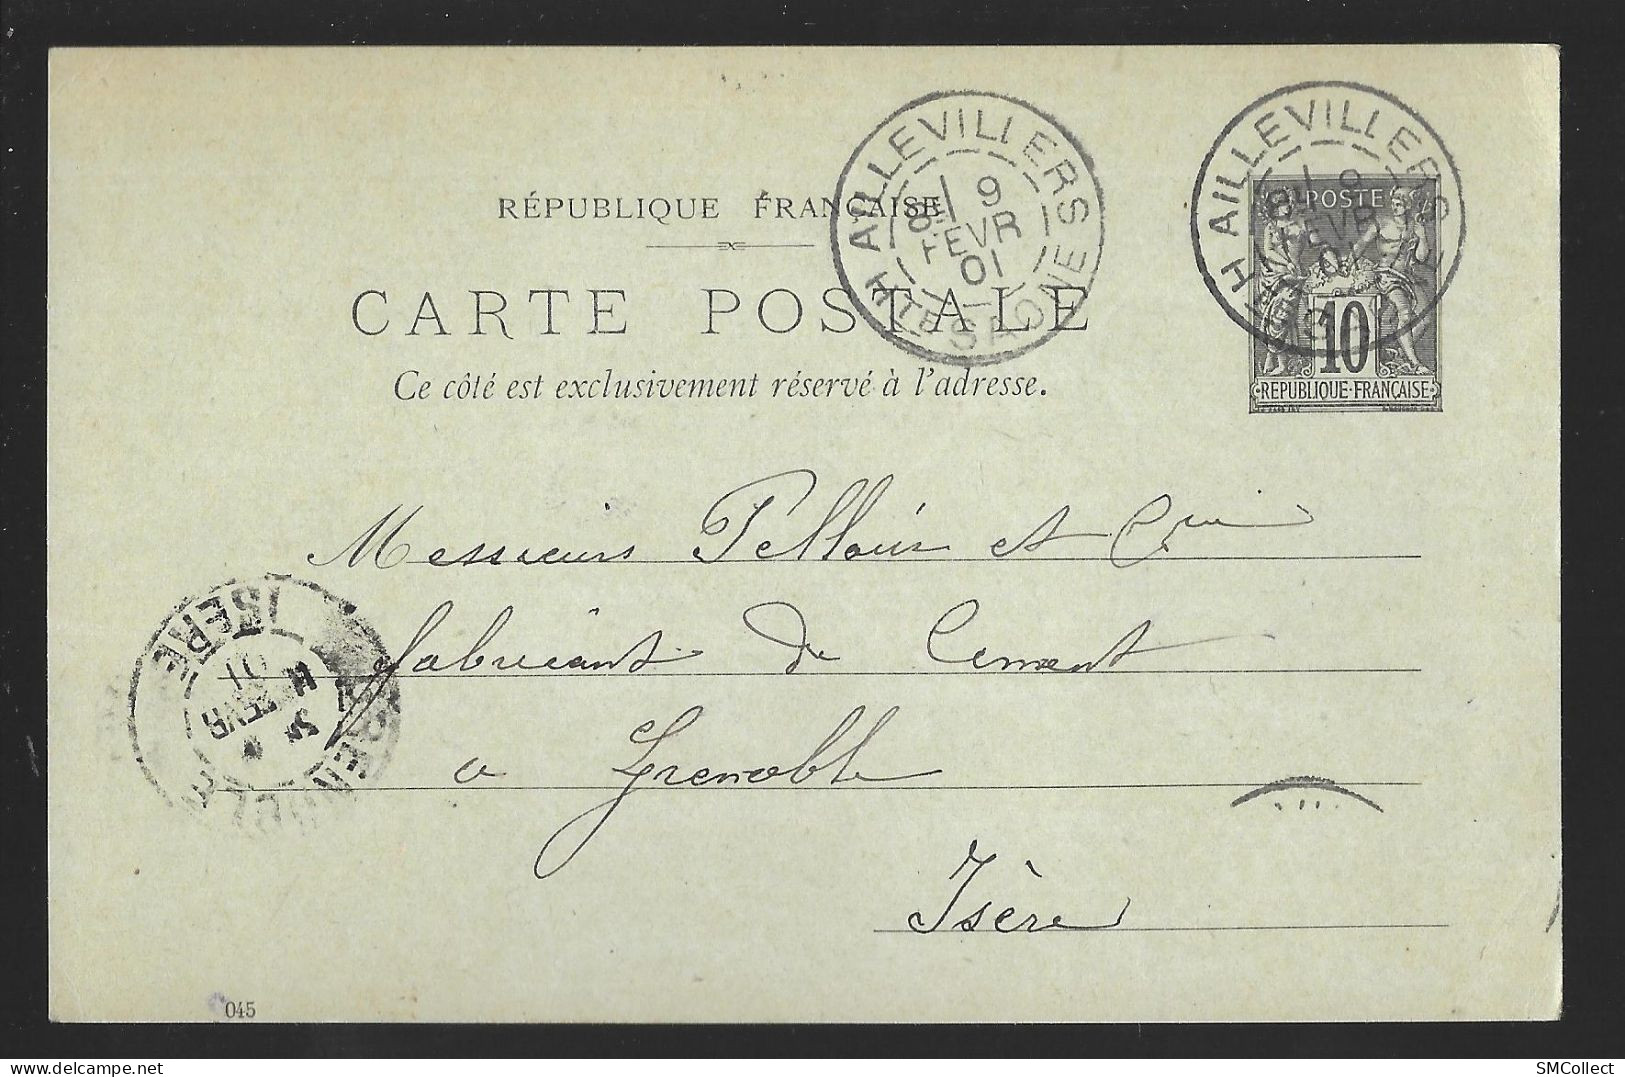 RÉPUBLIQUE FRANÇAISE
CARTE POSTALE
Ce côté est exclusivement réservé à l'adresse.
AILLEVILLERS
8E 1 9
FEVR
01
HTE SAONE
AILLEVILLERS
8E 1 9
FEVR
01
HTE SAONE
POSTE
10
REPUBLIQUE FRANÇAISE
Messieurs Pelloux et Cie
fabricant de Ciment
a Grenoble
Isère
GRENOBLE
FEVR
01
ISERE
045
SMCollect